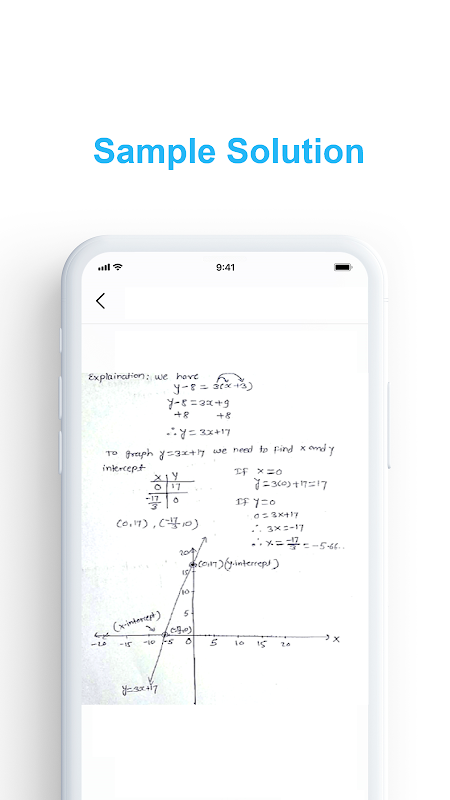 Sample Solution
9:41
Explaination: we have
y-8 = 3(x+3)
y-8 = 3x+9
+8 +8
∴ y = 3x+17
To graph y=3x+17 we need to find x and y
intercept
x | y
0 | 17
-17/3 | 0
(0,17), (-17/3,0)
If x=0
y=3(0)+17=17
If y=0
0=3x+17
∴ 3x=-17
∴ x = -17/3 = -5.66..
20
(0,17) (y-intercept)
15
10
5
(x-intercept)
-20 -15 -10 -5 0 5 10 15 20 x
y=3x+17